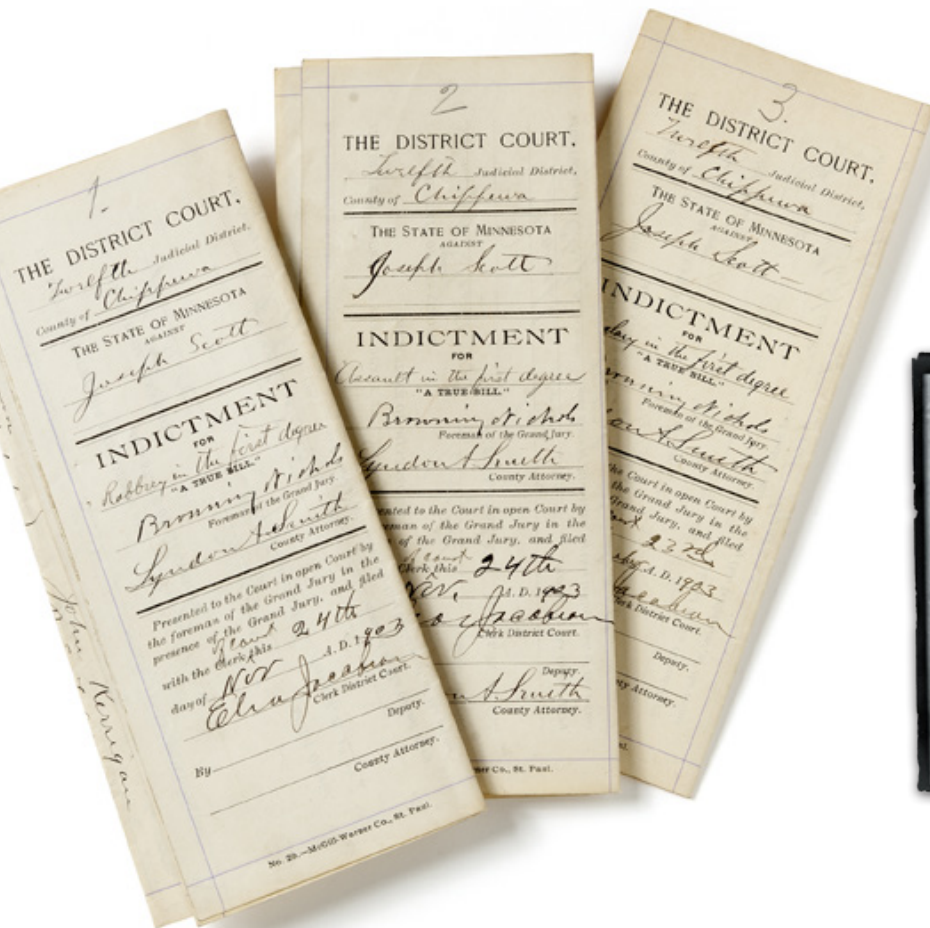 1.
THE DISTRICT COURT,
Twelfth Judicial District,
County of Chippewa
THE STATE OF MINNESOTA
AGAINST
Joseph Scott
INDICTMENT
FOR
Robbrey in the first degree
"A TRUE BILL."
Browning Nichols
Foreman of the Grand Jury.
Lyndon A. Smith
County Attorney.
Presented to the Court in open Court by
the foreman of the Grand Jury in the
presence of the Grand Jury, and filed
with the Clerk this 24th
day of Nov A. D. 1903
Elias Jacobson
Clerk District Court.
Deputy.
By
County Attorney.
No. 29.—McGill-Warner Co., St. Paul.
John Kerrigan
2
THE DISTRICT COURT.
Twelfth Judicial District,
County of Chippewa
THE STATE OF MINNESOTA
AGAINST
Joseph Scott
INDICTMENT
FOR
Assault in the first degree
"A TRUE BILL."
Browning Nichols
Foreman of the Grand Jury.
Lyndon A. Smith
County Attorney.
ented to the Court in open Court by
reman of the Grand Jury in the
of the Grand Jury, and filed
Clerk this 24th
Nov. A. D. 1903
Jacobson
Clerk District Court.
Deputy.
A. Smith
County Attorney.
ner Co., St. Paul.
3.
THE DISTRICT COURT,
Twelfth Judicial District,
County of Chippewa
THE STATE OF MINNESOTA
AGAINST
Joseph Scott
INDICTMENT
FOR
lary in the first degree
"A TRUE BILL."
Browning Nichols
Foreman of the Grand Jury.
on A. Smith
County Attorney.
the Court in open Court by
the Grand Jury in the
Grand Jury, and filed
23rd
A. D. 1903
Jacobson
Clerk District Court.
Deputy.
County Attorney.